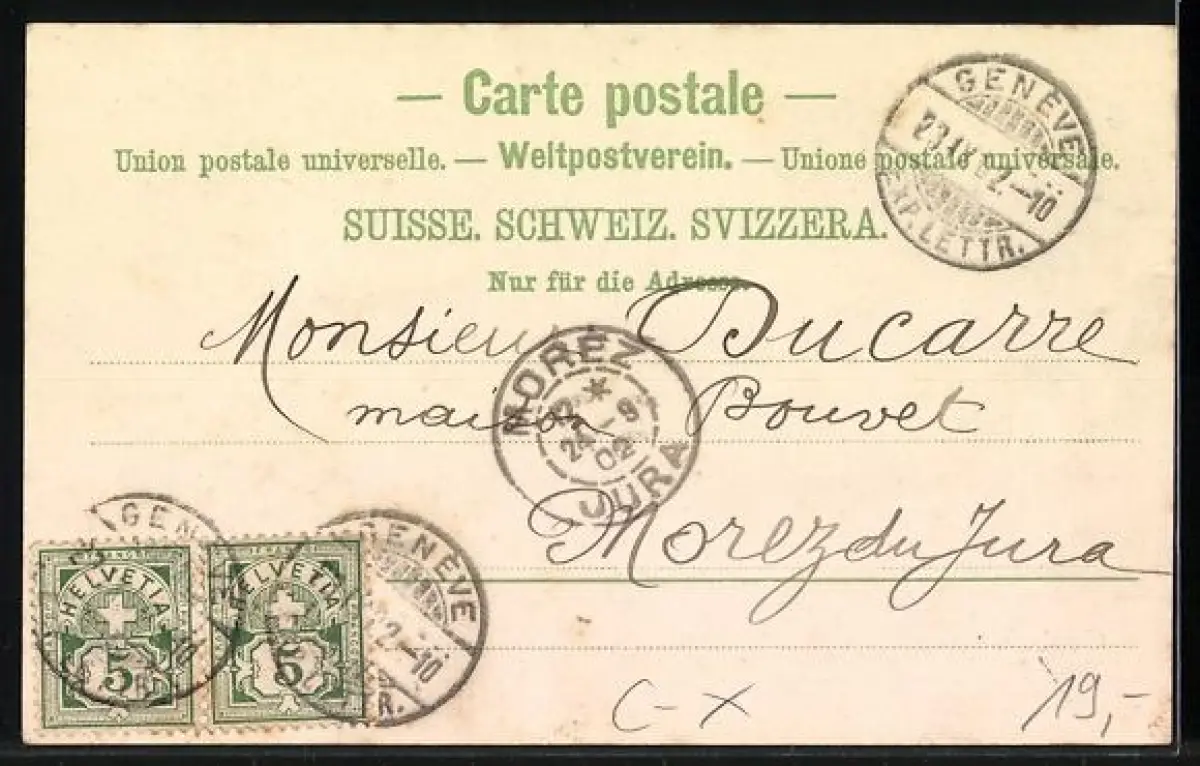 — Carte postale —
Union postale universelle. — Weltpostverein. — Unione postale universale.
SUISSE. SCHWEIZ. SVIZZERA.
Nur für die Adresse.
GENÈVE
2–10
EXP. LETTR.
Monsieur Ducarre
maison Bouvet
Morez du Jura
MOREZ
24 – 9
02
JURA
GENÈVE
GENÈVE
2–10
HELVETIA
5
HELVETIA
5
C – X
19,-